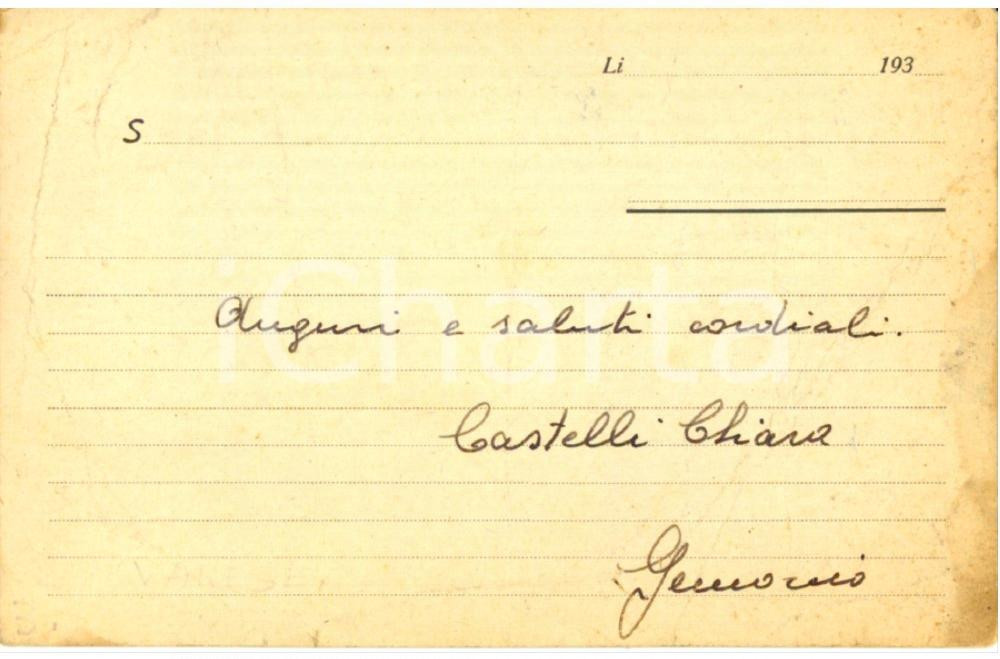 Li 193
S
Auguri e saluti cordiali.
Castelli Chiara
Gemonio
iCharta